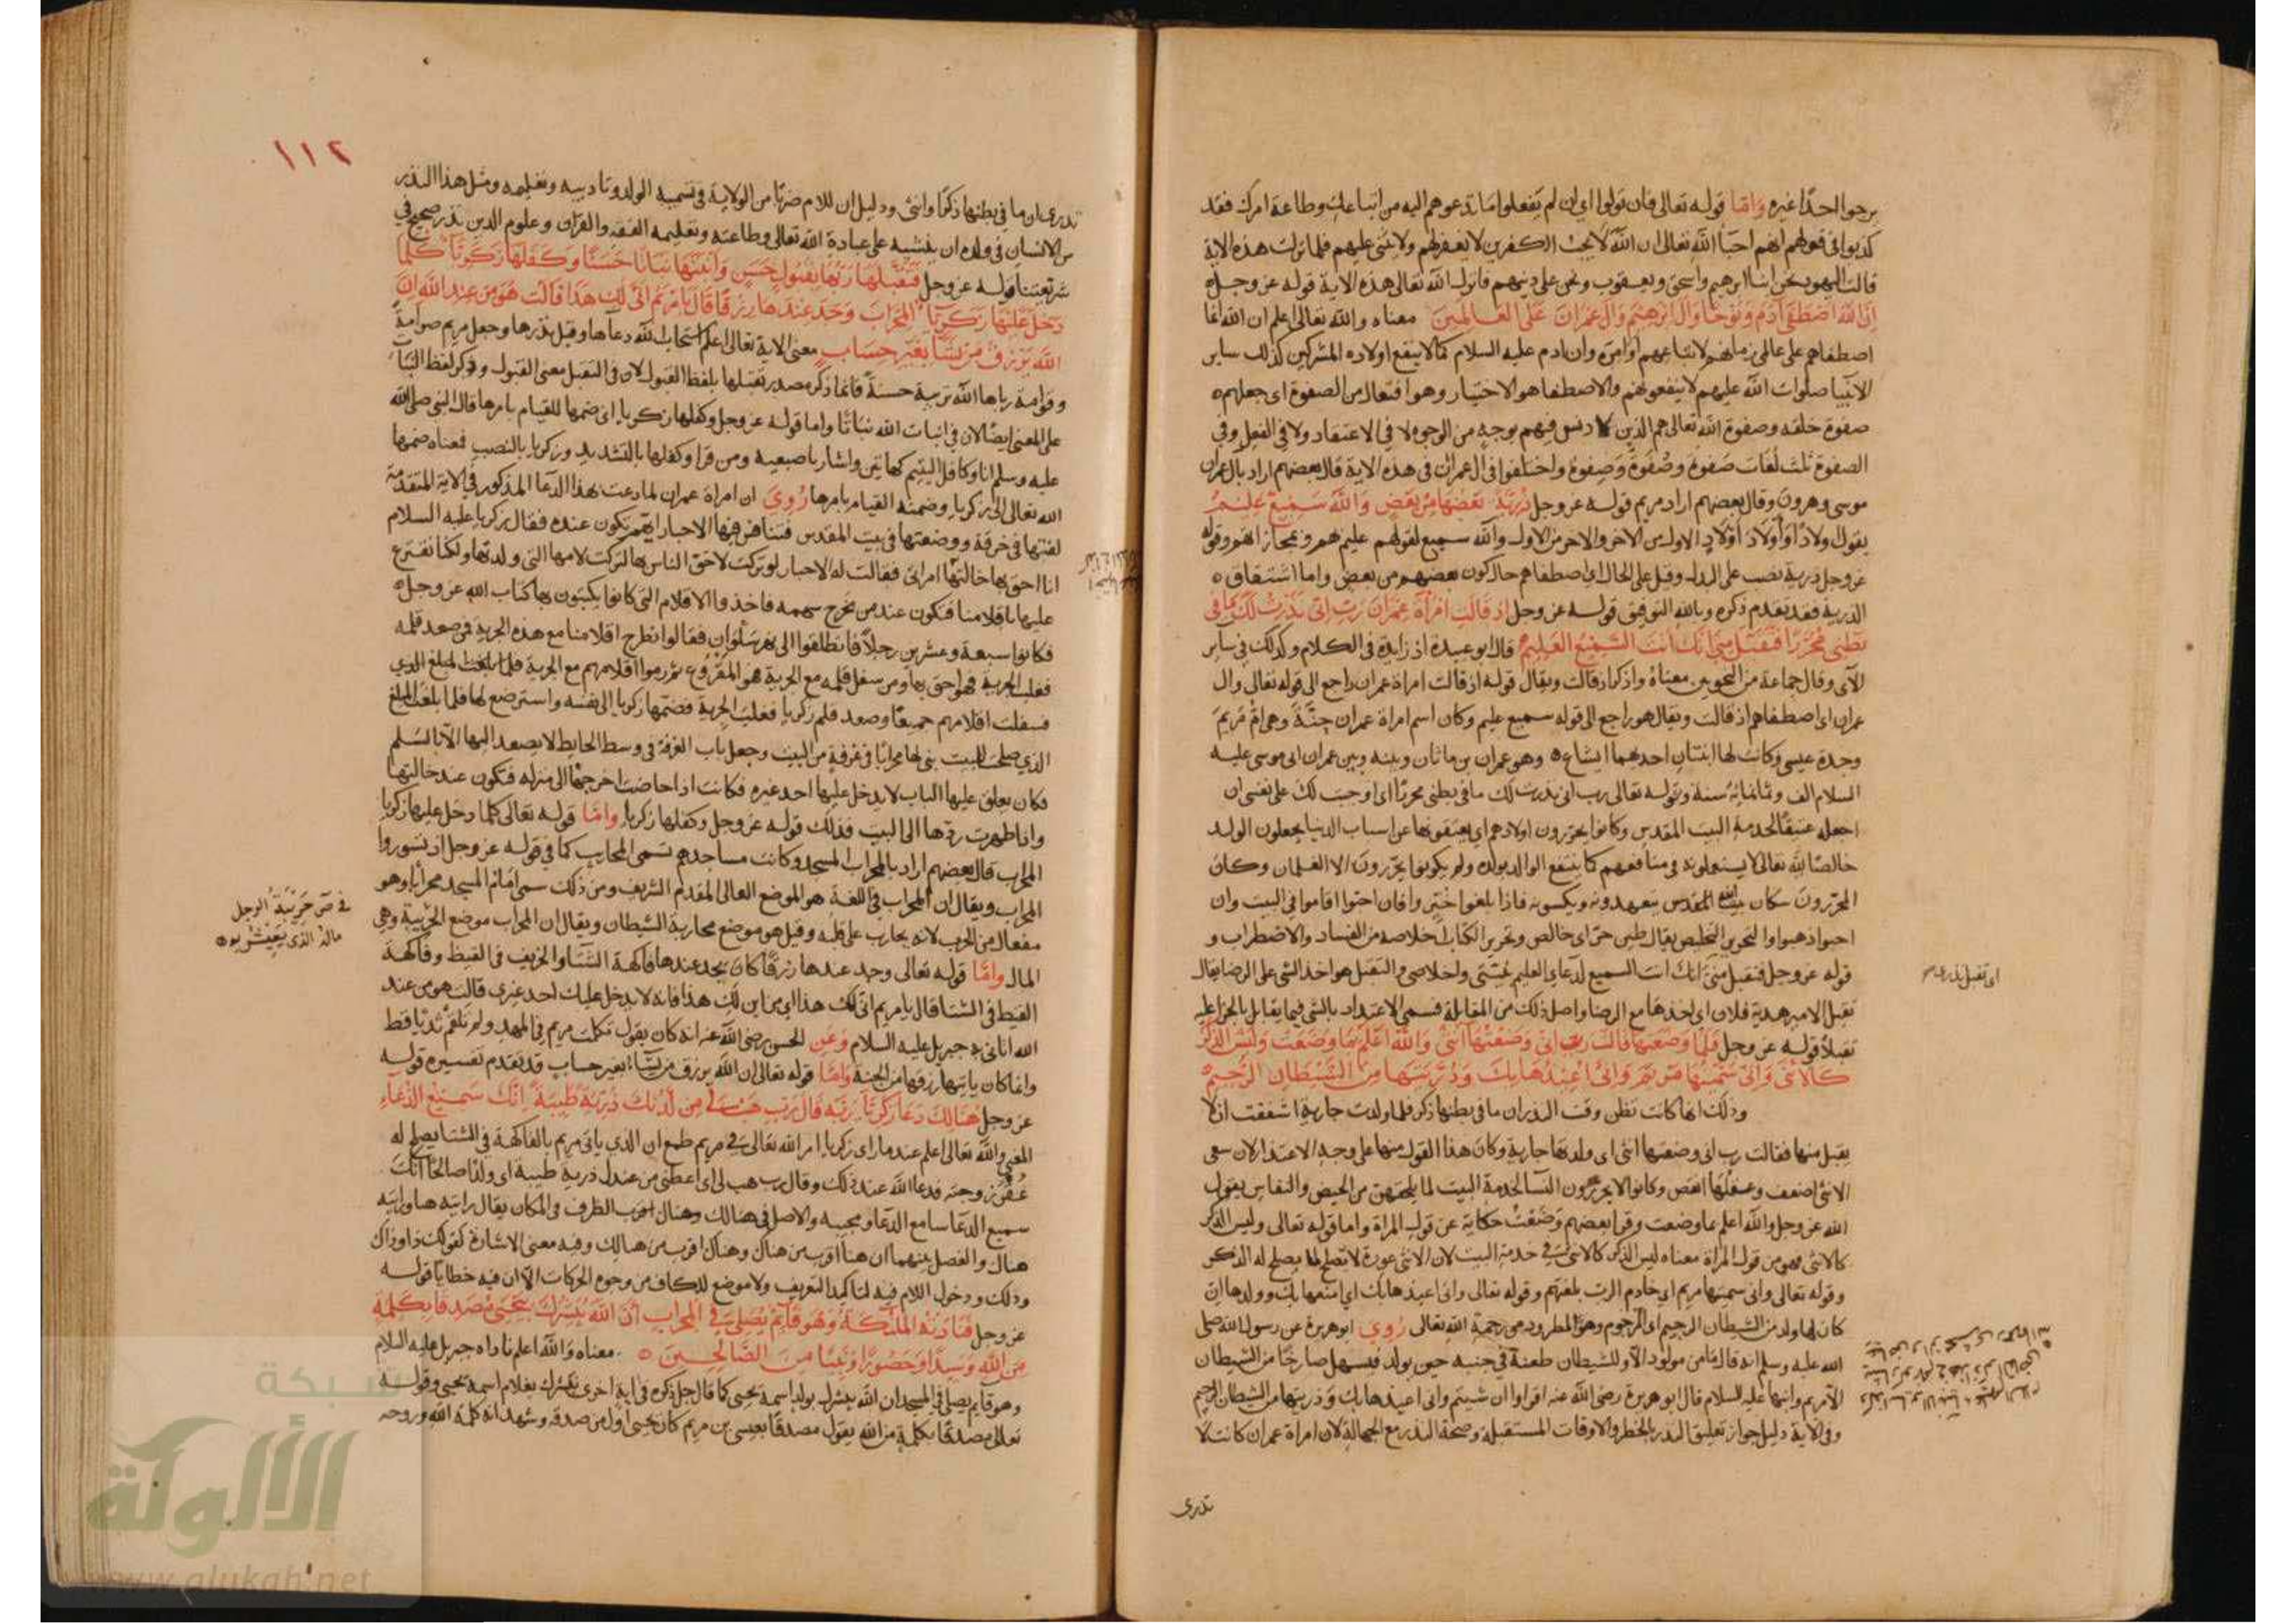 يرجوا احدًا غيره واما قوله تعالى فان تولوا اي ان لم يفعلوا ما تدعوهم اليه من اتباعك وطاعة امرك فقد
كذبوا في قولهم انهم احبا الله تعالى ان الله لا يحب الكفرين لا يغفر لهم ولا يثنى عليهم فلما نزلت هذه الاية
قالت اليهود نحن ابنا ابرهيم واسحق ويعقوب ونحن على دينهم فانزل الله تعالى هذه الاية قوله عز وجل
ان الله اصطفى ادم ونوحا وال ابرهيم وال عمران على العالمين معناه والله تعالى اعلم ان الله انما
اصطفاهم على عالمي زمانهم لاتباعهم اوامره وان ادم عليه السلام كما لا ينفع اولاده المشركين كذلك ساير
الانبيا صلوات الله عليهم لا ينفعونهم والاصطفا هو الاختيار وهو افتعال من الصفوة اي جعلهم
صفوة خلقه وصفوة الله تعالى هم الذين لا دنس فيهم بوجه من الوجوه لا في الاعتقاد ولا في الفعل وفي
الصفوة ثلث لغات صَفوة وصُفوة وصِفوة واختلفوا في ال عمران في هذه الاية قال بعضهم اراد بال عمران
موسى وهرون وقال بعضهم اراد مريم قوله عز وجل ذرية بعضها من بعض والله سميع عليم
يقول ولادًا واولاد اولاد الاول من الاخر والاخر من الاول والله سميع لقولهم عليم بهم وبمجازاتهم وقوله
عز وجل ذرية نصب على البدل وقيل على الحال اي اصطفاهم حال كون بعضهم من بعض واما اشتقاق
الذرية فقد تقدم ذكره وبالله التوفيق قوله عز وجل اذ قالت امراة عمران رب اني نذرت لك ما في
بطني محررا فتقبل مني انك انت السميع العليم قال ابو عبيدة اذ زايدة في الكلام وكذلك في ساير
الآي وقال جماعة من النحويين معناه واذكر اذ قالت ويقال قوله اذ قالت امراة عمران راجع الى قوله تعالى وال
عمران اي اصطفاهم اذ قالت ويقال هو راجع الى قوله سميع عليم وكان اسم امراة عمران حنَّة وهي ام مريم
وجدة عيسى وكانت لها ابنتان احدهما ايشاع وهو عمران بن ماثان وبينه وبين عمران ابي موسى عليه
السلام الف وثمانمائة سنة وقوله تعالى رب اني نذرت لك ما في بطني محررًا اي اوجبت لك على نفسي ان
اجعله عتيقًا لخدمة البيت المقدس وكانوا يحررون اولادهم اي يعتقونها عن اسباب الدنيا يجعلون الولد
خالصًا لله تعالى لا يستعملونه في منافعهم كما ينتفع الوالد بولده ولم يكونوا يحررون الا الغلمان وكان
المحررون سكان بيت المقدس يتعهدونه ويكنسونه فاذا بلغوا خيروا فان احبوا اقاموا في البيت وان
احبوا ذهبوا والتحرير التخليص يقال طين حر اي خالص وتحرير الكتاب اخلاصه من الفساد والاضطراب و
قوله عز وجل فتقبل مني انك انت السميع لدعاي العليم بنيتي واخلاصي والتقبل هو اخذ الشي على الرضا يقال
تقبل الامير هدية فلان اي اخذها مع الرضا واصل ذلك من المقابلة فسمي الاعتداد بالشي فيما يقابل بالجزا عليه
تقبلاً قوله عز وجل فلما وضعتها قالت رب اني وضعتها انثى والله اعلم بما وضعت وليس الذكر
كالانثى واني سميتها مريم واني اعيذها بك وذريتها من الشيطان الرجيم
وذلك انها كانت تظن وقت النذر ان ما في بطنها ذكر فلما ولدت جارية اشفقت ان لا
يقبل منها فقالت رب اني وضعتها انثى اي ولدتها جارية وكان هذا القول منها على وجه الاعتذار لان سعى
الانثى اضعف وعقلها انقص وكانوا لا يحررون النسا لخدمة البيت لما يلحقهن من الحيض والنفاس يقول
الله عز وجل والله اعلم بما وضعت وقرا بعضهم وضعتُ حكاية عن قول المراة واما قوله تعالى وليس الذكر
كالانثى فهو من قول المراة معناه ليس الذكر كالانثى في خدمة البيت لان الانثى عورة لا تصلح لما يصلح له الذكر
وقوله تعالى واني سميتها مريم اي خادم الرب بلغتهم وقوله تعالى واني اعيذها بك اي امنعها بك وولدها ان
كان لها ولد من الشيطان الرجيم اي المرجوم وهو المطرود من رحمة الله تعالى روي ابو هريرة عن رسول الله صلى
الله عليه وسلم انه قال ما من مولود الا وللشيطان طعنة في جنبه حين يولد فيستهل صارخًا من الشيطان
الا مريم وابنها عليه السلام قال ابو هريرة رضى الله عنه اقراوا ان شيتم واني اعيذها بك وذريتها من الشيطان الرجيم
وفي الاية دليل جواز تعليق النذر بالخطر والاوقات المستقبلة وصحة النذر مع الجهالة لان امراة عمران كانت لا
تدرى
اى تقبل نذرى
١١٢
تدرى ان ما في بطنها ذكرًا وانثى ودليل ان للام ضربًا من الولاية في تسمية الولد وتاديبه وتعليمه ومثل هذا النذر
من الانسان في ولده ان ينشيه على عبادة الله تعالى وطاعته وتعليمه الفقه والقران وعلوم الدين نذر صحيح في
شريعتنا قوله عز وجل فتقبلها ربها بقبول حسن وانبتها نباتا حسنا وكفلها زكريا كلما
دخل عليها زكريا المحراب وجد عندها رزقا قال يا مريم انى لك هذا قالت هو من عند الله ان
الله يرزق من يشا بغير حساب معنى الاية تعالى اعلم استجاب الله دعآها وقبل نذرها وجعل مريم صوامةً
وقوامة رباها الله تربية حسنةً فانما ذكر مصدر تقبلها بلفظ القبول لان في التقبل معنى القبول وذكر لفظ النبات
على المعنى ايضًا لان في انبات الله نباتًا واما قوله عز وجل وكفلها زكريا اي ضمها للقيام بامرها قال النبي صلى الله
عليه وسلم انا وكافل اليتيم كهاتين واشار باصبعيه ومن قرا وكفلها بالتشديد وزكريا بالنصب فمعناه ضمها
الله تعالى الى زكريا وضمنه القيام بامرها روي ان امراة عمران لما دعت بهذا الدعا المذكور في الاية المتقدمة
لفتها في خرقة ووضعتها في بيت المقدس فتنافس فيها الاحبار ايهم تكون عنده فقال زكريا عليه السلام
انا احق بها خالتها امراتي فقالت له الاحبار لو تركت لاحق الناس بها لتركت لامها التي ولدتها ولكنا نقترع
عليها باقلامنا فتكون عند من يخرج سهمه فاخذوا الاقلام التي كانوا يكتبون بها كتاب الله عز وجل
فكانوا سبعة وعشرين رجلاً فانطلقوا الى نهر سلوان فقالوا نطرح اقلامنا مع هذه الجرية فمن صعد قلمه
فغلب الجرية فهو احق بها ومن سفل قلمه مع الجرية هو المقروع ثم رموا اقلامهم مع الجرية فلما بلغت المبلغ الذي
فسفلت اقلامهم جميعًا وصعد قلم زكريا فغلب الجرية فضمها زكريا الى نفسه واسترضع لها فلما بلغت المبلغ
الذي صلحت للبيت بنى لها محرابًا في غرفة من البيت وجعل باب الغرفة في وسط الحايط لا يصعد اليها الا بالسلم
فكان يغلق عليها الباب لا يدخل عليها احد غيره فكانت اذا حاضت اخرجها الى منزله فتكون عند خالتها
واذا طهرت ردها الى البيت فذلك قوله عز وجل وكفلها زكريا واما قوله تعالى كلما دخل عليها زكريا
المحراب قال بعضهم اراد بالمحراب المسجد وكانت مساجدهم تسمى المحاريب كما في قوله عز وجل اذ تسوروا
المحراب ويقال ان المحراب في اللغة هو الموضع العالى المقدم الشريف ومن ذلك سمي امام المسجد محرابا وهو
مفعال من الحرب لانه يحارب على قلبه وقيل هو موضع محاربة الشيطان ويقال ان المحراب موضع الحريبة وهي
المال واما قوله تعالى وجد عندها رزقًا كان يجد عندها فاكهة الشتا والخريف في القيظ وفاكهة
القيظ في الشتا قال يا مريم انى لك هذا اي من اين لك هذا فانه لا يدخل عليك احد غيري قالت هو من عند
الله اتاني به جبريل عليه السلام وعن الحسن رضى الله عنه انه كان يقول تكلمت مريم في المهد ولم تلقم ثديًا قط
وانما كان ياتيها رزقها من الجنة واما قوله تعالى ان الله يرزق من يشآ بغير حساب قد تقدم تفسيره قوله
عز وجل هنالك دعا زكريا ربه قال رب هب لي من لدنك ذرية طيبة انك سميع الدعاء
المعنى والله تعالى اعلم عند ما راى زكريا امر الله تعالى في مريم طمع ان الذي ياتى مريم بالفاكهة في الشتا يصلح له
عقر زوجته فدعا الله عند ذلك وقال رب هب لي اي اعطني من عندك ذرية طيبة اي ولدًا صالحًا انك
سميع الدعا سامع الدعا ومجيبه والاصل في هنالك وهناك اقرب الظرف في المكان يقال رايته هنا ورايته
هناك والفصل بينهما ان هنا اقرب من هناك وهناك اقرب من هنالك وفيه معنى الاشارة كقولك ذا وذاك
وذلك ودخول اللام فيه لتاكيد التعريف ولا موضع للكاف من وجوه الحركات الا ان فيه خطابًا قوله
عز وجل فنادته الملئكة وهو قآيم يصلى في المحراب ان الله يبشرك بيحيى مصدقا بكلمة
من الله وسيدًا وحصورًا ونبيا من الصالحين معناه والله اعلم ناداه جبريل عليه السلام
وهو قايم يصلي في المسجد ان الله يبشرك بولد اسمه يحيى كما قال جل ذكره في اية اخرى نبشرك بغلام اسمه يحيى وقوله
تعالى مصدقًا بكلمة من الله يقول مصدقًا بعيسى بن مريم كان يحيى اول من صدقه وشهد انه كلمة الله وروحه
في ص حريبة الرجل
ماله الذى يعيش به
شبكة
الألوكة
www.alukah.net